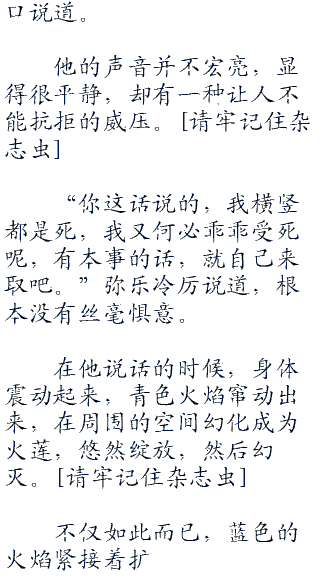 口说道。
他的声音并不宏亮，显
得很平静，却有一种让人不
能抗拒的威压。[请牢记住杂
志虫]
“你这话说的，我横竖
都是死，我又何必乖乖受死
呢，有本事的话，就自己来
取吧。”弥乐冷厉说道，根
本没有丝毫惧意。
在他说话的时候，身体
震动起来，青色火焰窜动出
来，在周围的空间幻化成为
火莲，悠然绽放，然后幻
灭。[请牢记住杂志虫]
不仅如此而已，蓝色的
火焰紧接着扩